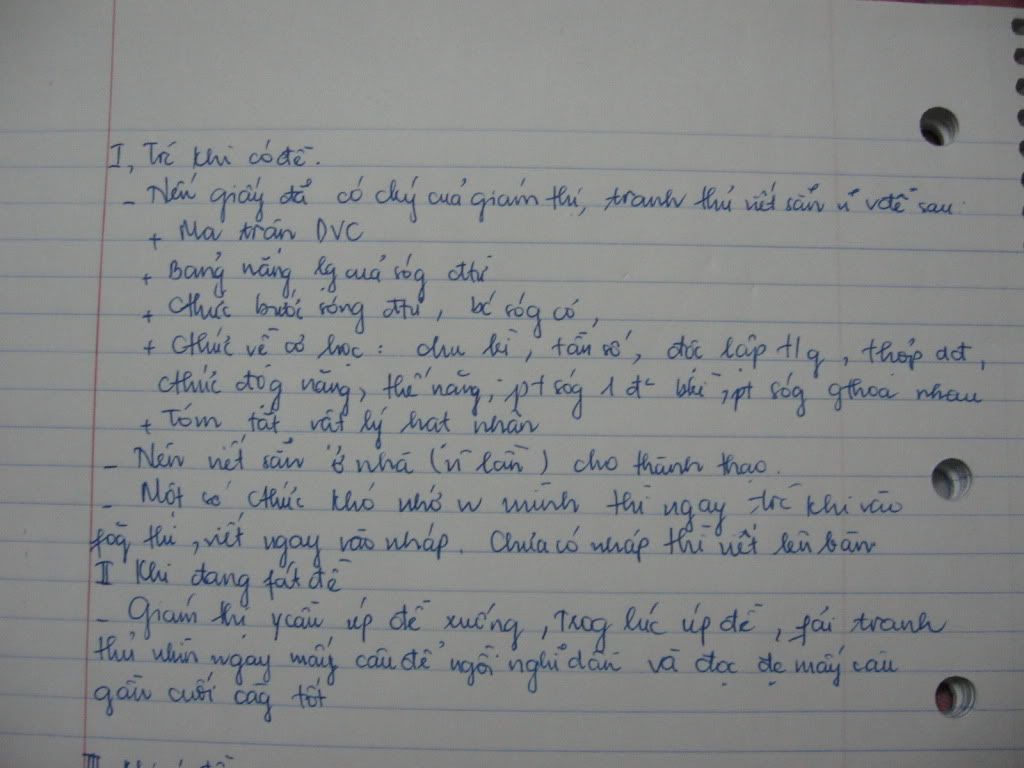 I, Trc khi có đề.
- Nếu giấy đã có chý của giám thị, tranh thủ viết sẵn n~ vđề sau:
+ Ma trận DVC
+ Bảng năng lg của sóg đtừ
+ Cthức bước sóng đtừ, bc sóg có,
+ Cthức về cơ học: chu kì, tần số, độc lập t/g, thợp dđ,
cthức độg năng, thế năng, pt sóg 1 đ² bkì, pt sóg gthoa nhau
+ Tóm tắt vật lý hạt nhân
- Nên viết sẵn ở nhà (n` lần) cho thành thạo.
- Một số cthức khó nhớ w mình thì ngay trc khi vào
fòg thi, viết ngay vào nháp. Chưa có nháp thì viết lên bàn
II Khi đang fát đề
- Giám thị ycầu úp đề xuống, Trog lúc úp đề, fải tranh
thủ nhìn ngay mấy câu để ngồi nghĩ dần và đọc mấy câu
gần cuối càg tốt
III